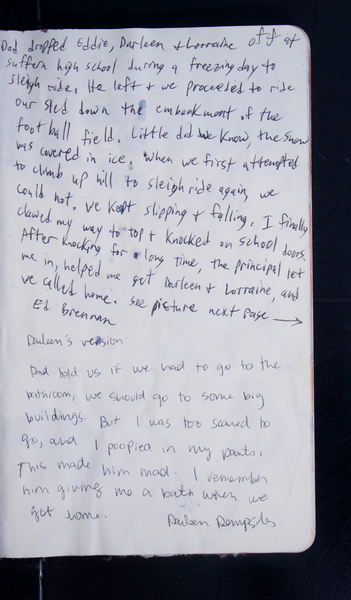 Dad dropped Eddie, Darleen + Lorraine off at
suffern high school during a freezing day to
sleigh ride. He left + we proceeded to ride
our sled down the embankment of the
football field. Little did we know, the snow
was covered in ice. When we first attempted
to climb up hill to sleigh ride again, we
could not. We kept slipping + falling. I finally
clawed my way to top + knocked on school doors.
After knocking for a long time, the principal let
me in, helped me get Darleen + Lorraine, and
we called home. See picture next page →
Ed Brennan
Darleen's version:
Dad told us if we had to go to the
bathroom, we should go to some big
buildings. But I was too scared to
go, and I poopied in my pants.
This made him mad. I remember
him giving me a bath when we
got home.
Darleen Dempsey